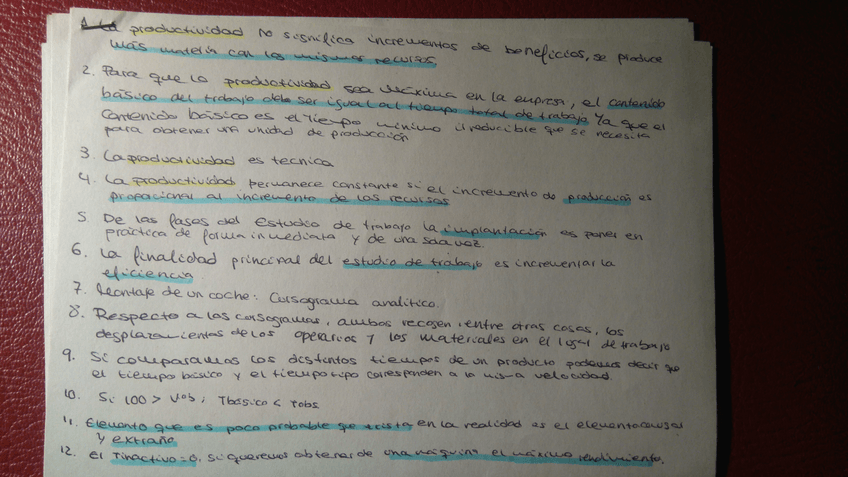 La productividad no significa incrementos de beneficios, se produce
más materia con los mismos recursos
2. Para que la productividad sea máxima en la empresa, el contenido
básico del trabajo debe ser igual al tiempo total de trabajo ya que el
contenido básico es el tiempo mínimo irreducible que se necesita
para obtener una unidad de producción
3. La productividad es tecnica
4. La productividad permanece constante si el incremento de producción es
propocional al incremento de los recursos
5. De las fases del estudio de trabajo la implantación es poner en
práctica de forma inmediata y de una sola vez.
6. La finalidad principal del estudio de trabajo es incrementar la
eficiencia
7. Montaje de un coche: Cursograma analítico.
8. Respecto a los cursogramas, ambos recogen, entre otras cosas, los
desplazamientos de los operarios y los materiales en el lugar de trabajo
9. Si comparamos los distintos tiempos de un producto podemos decir que
el tiempo básico y el tiempo tipo corresponden a la misma velocidad.
10. Si 100 > Vob, Tbásico < Tobs
11. Elemento que es poco probable que exista en la realidad es el elemento casual
y extraño
12. El Tinactivo = 0, si queremos obtener de una máquina el máximo rendimiento.